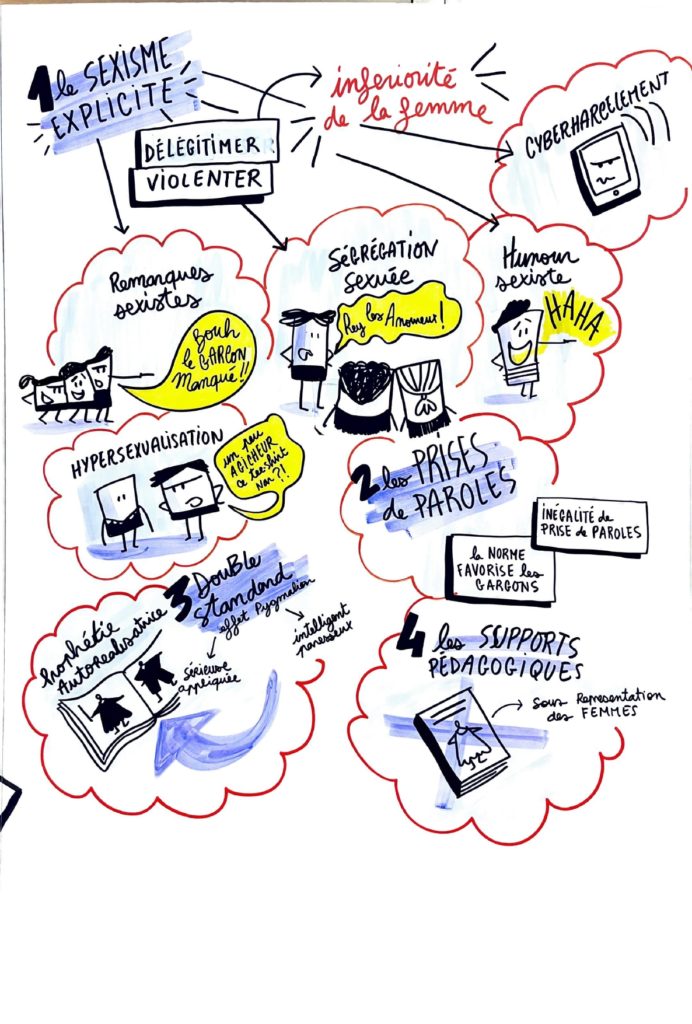 1 le SEXISME
EXPLICITE
DÉLÉGITIMER
VIOLENTER
infériorité
de la femme
CYBERHARCELEMENT
Remarques
sexistes
bouh
le GARÇON
Manqué!!
SÉGRÉGATION
sexuée
Hey les Anomeux!
Humour
sexiste
HAHA
HYPERSEXUALISATION
un peu
AGICHEUR
ce tee-shirt
non?!
2 les PRISES
de PAROLES
INÉGALITÉ de
PRISE de PAROLES
la NORME
FAVORISE les
GARÇONS
3 Double
Standard
effet Pygmalion
Prophétie
Autoréalisatrice
sérieuse
appliquée
intelligent
paresseux
4 les SUPPORTS
PÉDAGOGIQUES
Sous Représentation
des FEMMES